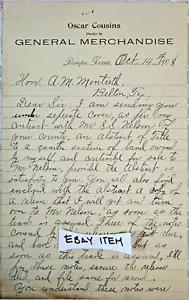 Oscar Cousins
Dealer in
GENERAL MERCHANDISE
Pampa, Texas, Oct 14th 1908
Hon. A.M. Monteith
Belton Tex.
Dear Sir, I am sending you
under seperate cover, as per my
contract with Mr S.S. Nelson, of
your County, an Abstract of Title
to a quarter section of land owned
by myself, and contracted for sale to
Mr Nelson, provided the Abstract is
satisfactory to you. You will also find
inclosed with the Abstract a Copy of
a release that I will get and turn
over to Mr Nelson, as soon as the
EBAY ITEM
and have
soon as this trade is
these notes, secure the release
and file same for record.
You understand these notes were